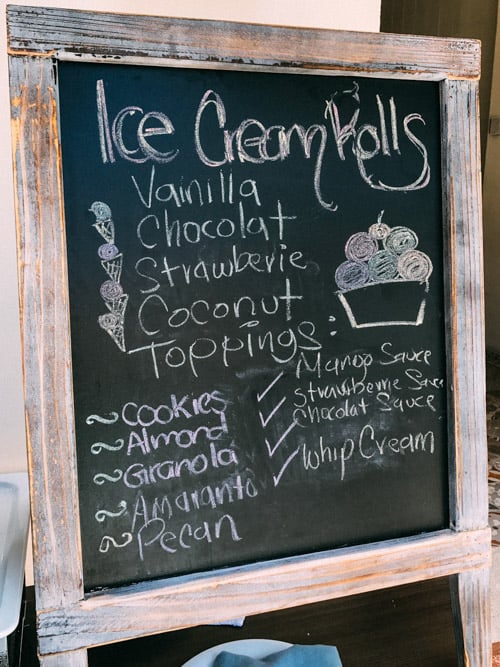 Ice Cream Rolls
Vainilla
Chocolat
Strawberie
Coconut
Toppings:
Cookies
Almond
Granola
Amaranto
Pecan
Mango Sauce
Strawberrie Sauce
Chocolat Sauce
Whip Cream